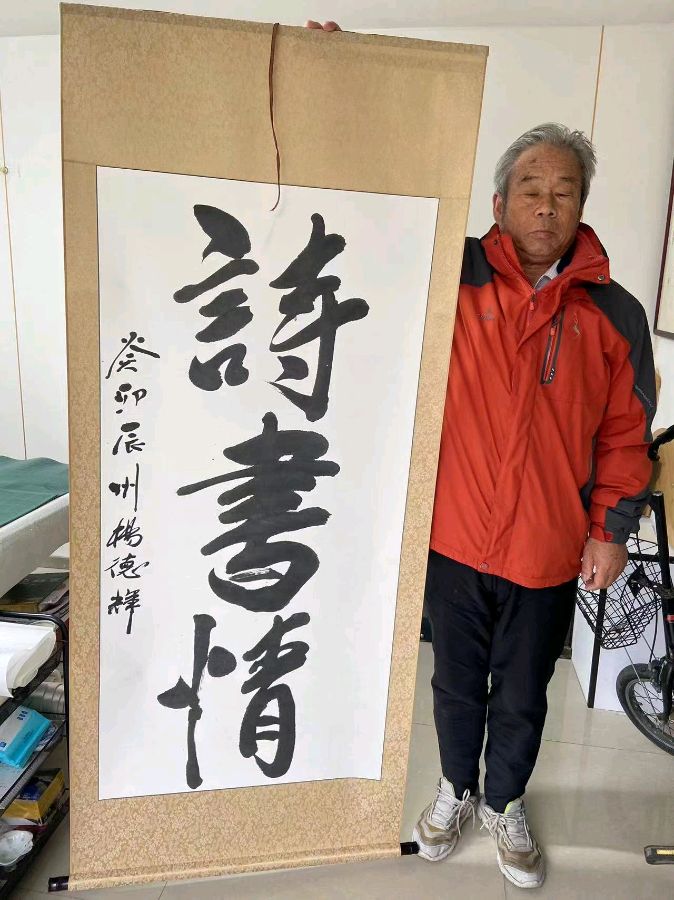 詩書情
癸卯辰州楊德輝